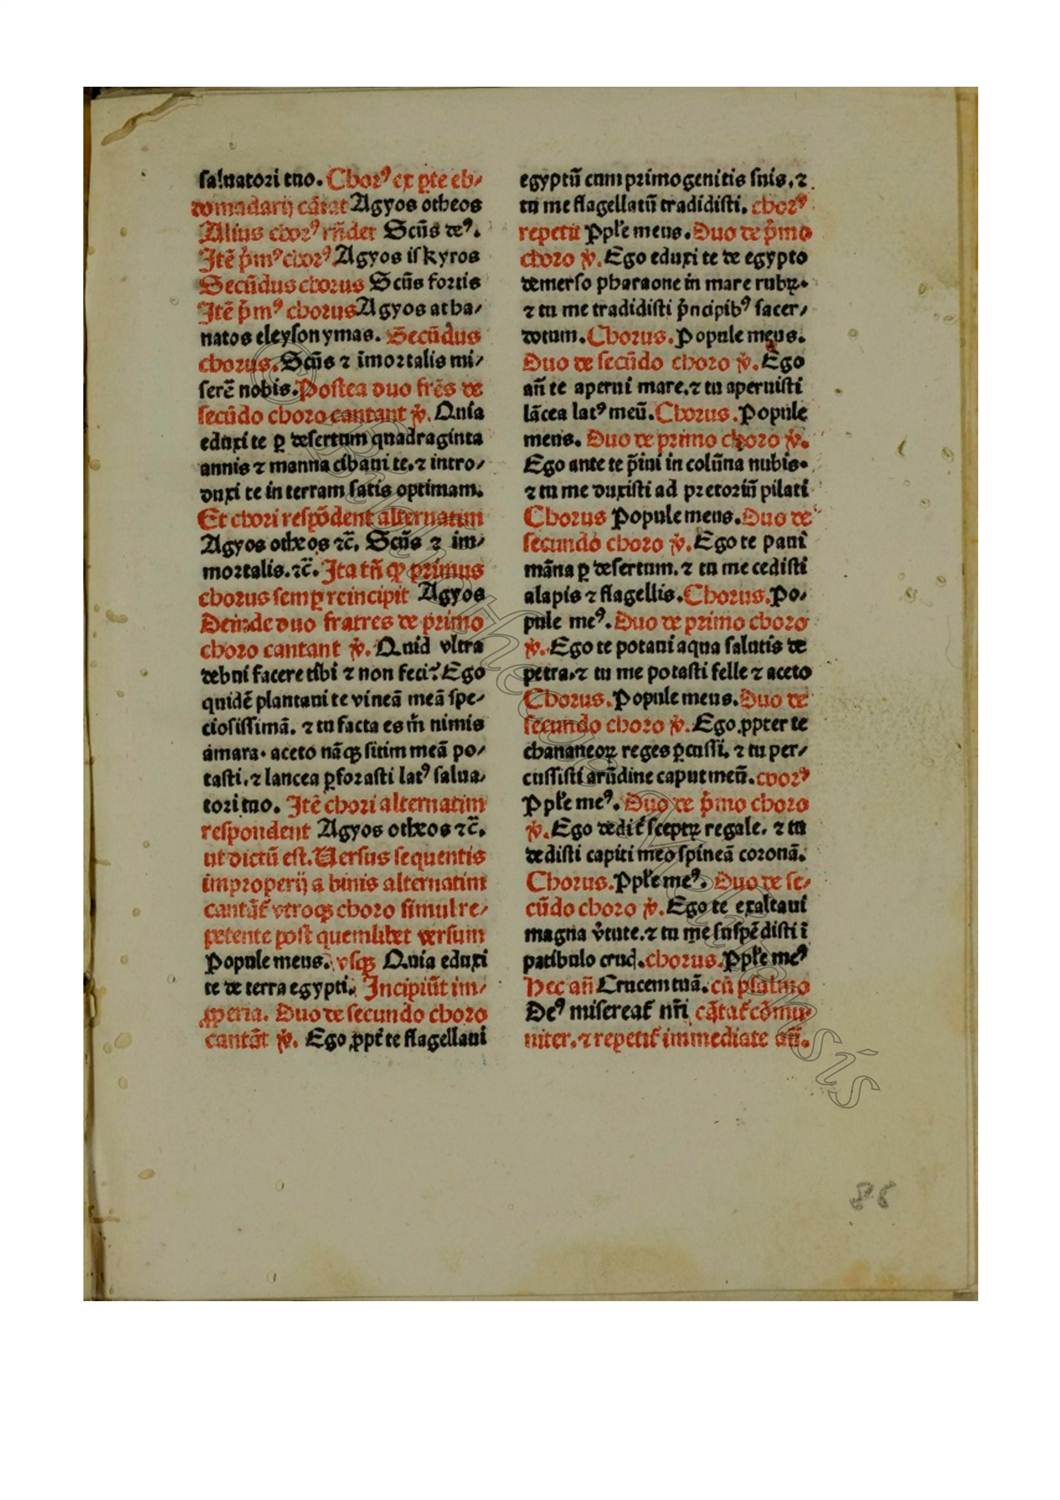 saluatori tuo. Chorꝰ ex ꝑte eb⸗
domadarij cãtat Agyos otheos
Alius chorꝰ rñdet Scũs deꝰ.
Itẽ p̃mꝰ chorꝰ Agyos iskyros
Secũdus chorus Scũs fortis
Itẽ p̃mꝰ chorus Agyos atha⸗
natos eleyson ymas. Secũdus
chorus. Scũs ⁊ ĩmortalis mi⸗
serẽ nobis. Postea duo frẽs de
secũdo choro cantant ℣. Quia
eduxi te ꝑ desertum quadraginta
annis ⁊ manna cibaui te. ⁊ intro⸗
duxi te in terram satis optimam.
Et chori respõdent alternatim
Agyos otheos ⁊c̃. Scũs ⁊ im⸗
mortalis. ⁊c̃. Ita tñ ꝙ primus
chorus semꝑ reincipit Agyos
Deinde duo fratres de primo
choro cantant ℣. Quid vltra
debui facere tibi ⁊ non feci? Ego
quidẽ plantaui te vineã meã spe⸗
ciosissimã. ⁊ tu facta es m̃ nimis
amara. aceto nãqꝫ sitim meã po⸗
tasti. ⁊ lancea ꝑforasti latꝰ salua⸗
tori tuo. Itẽ chori alternatim
respondent Agyos otheos ⁊c̃.
ut dictũ est. Versus sequentis
improperij a binis alternatim
cantãt̃ vtroqꝫ choro simul re⸗
petente post quemlibet versum
Popule meus. vsqꝫ Quia eduxi
te de terra egypti. Incipiũt im⸗
ꝓperia. Duo de secundo choro
cantãt ℣. Ego ꝓpt̃ te flagellaui
egyptũ cum primogenitis suis. ⁊
tu me flagellatũ tradidisti. chorꝰ
repetit Pp̃le meus. Duo de p̃mo
choro ℣. Ego eduxi te de egypto
demerso pharaone in mare rubꝝ.
⁊ tu me tradidisti p̃ncipibꝰ sacer⸗
dotum. Chorus. Popule meus.
Duo de secũdo choro ℣. Ego
añ te aperui mare. ⁊ tu aperuisti
lãcea latꝰ meũ. Chorus. Popule
meus. Duo de primo choro ℣.
Ego ante te p̃iui in colũna nubis.
⁊ tu me duxisti ad pretoriũ pilati
Chorus Popule meus. Duo de
secundo choro ℣. Ego te paui
mãna ꝑ desertum. ⁊ tu me cedisti
alapis ⁊ flagellis. Chorus. Po⸗
pule meꝰ. Duo de primo choro
℣. Ego te potaui aqua salutis de
petra. ⁊ tu me potasti felle ⁊ aceto
Chorus. Popule meus. Duo de
secundo choro ℣. Ego ꝓpter te
chananeoꝝ reges ꝑcussi. ⁊ tu per⸗
cussisti arũdine caput meũ. chorꝰ
Pp̃le meꝰ. Duo de p̃mo choro
℣. Ego dedi t̃ sceptꝝ regale. ⁊ tu
dedisti capiti meo spineã coronã.
Chorus. Pp̃le meꝰ. Duo de se⸗
cũdo choro ℣. Ego te exaltaui
magna ṽtute. ⁊ tu me suspẽdisti ĩ
patibulo cruc̃. chorus. Pp̃le meꝰ
Hec añ Crucem tuã. cũ psalmo
Deꝰ misereat̃ nr̃i cãtat̃ cõmu⸗
niter. ⁊ repetit̃ immediate añ.
86